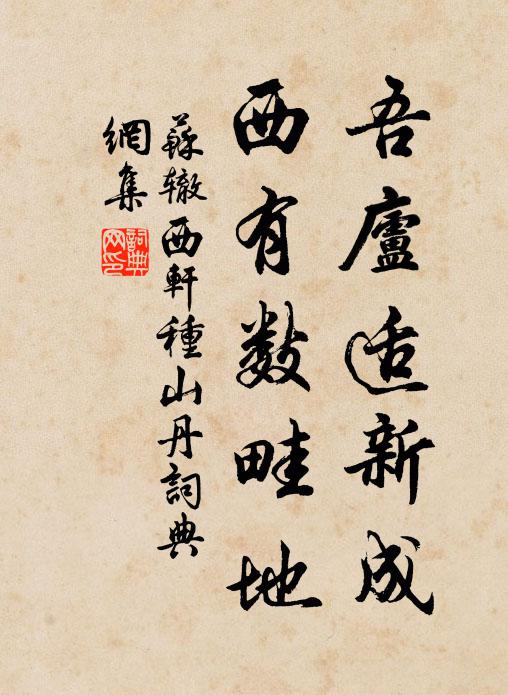 吾廬适新成
西有数畦地
蘇辙西軒種山丹詞典
網集
詞典
网印